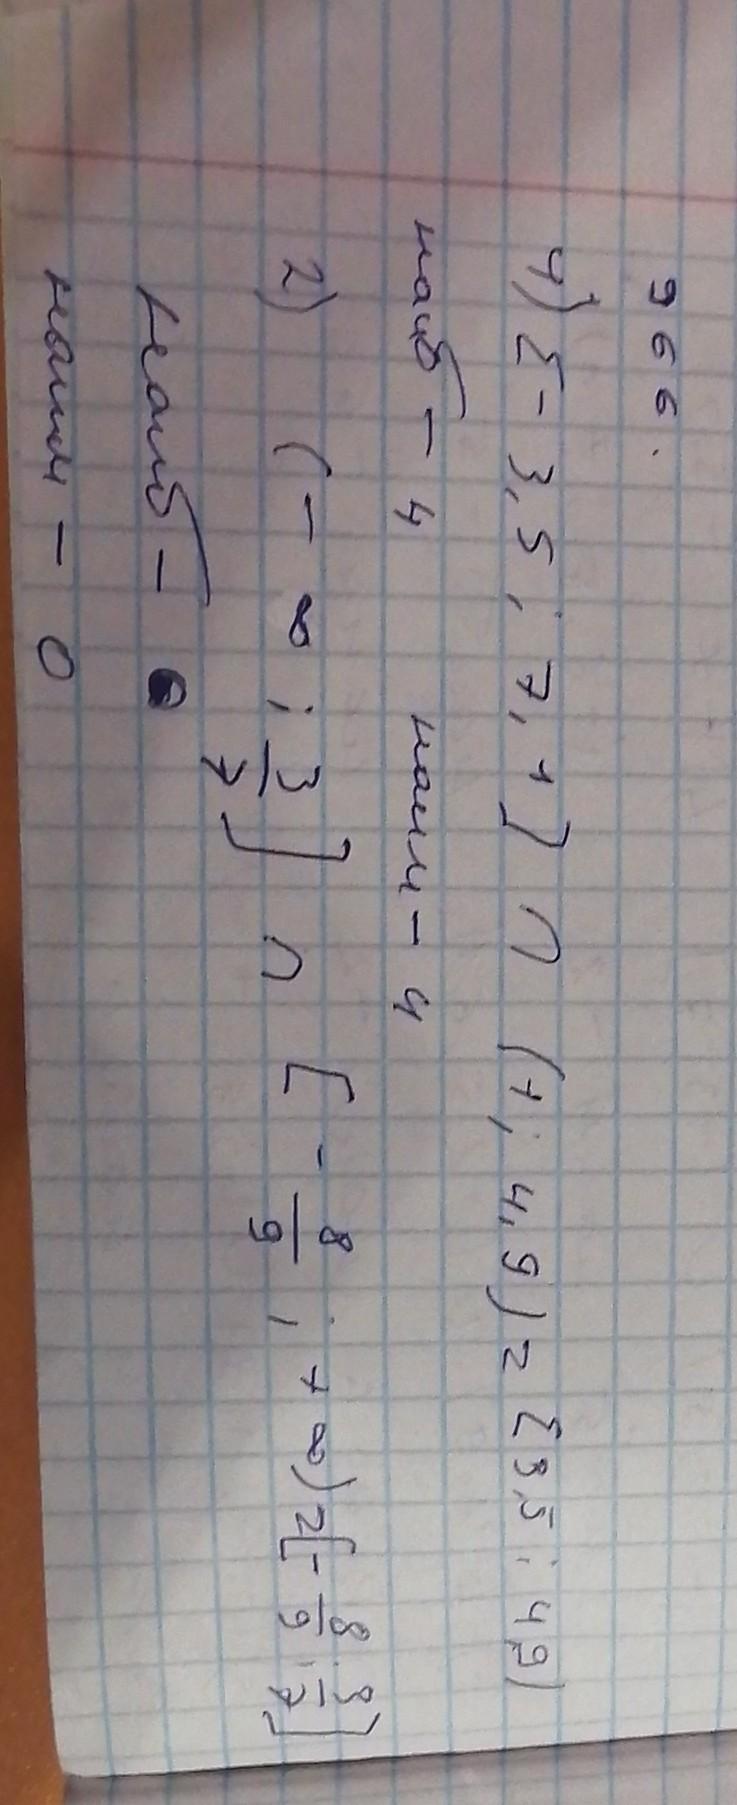 966.
1) [-3,5; 7,1] ∩ (1; 4,9) = [3,5; 4,9)
наиб - 4 наим - 4
2) (-∞; 3/7] ∩ [-8/9; +∞) = [-8/9; 3/7]
наиб - 0
наим - 0